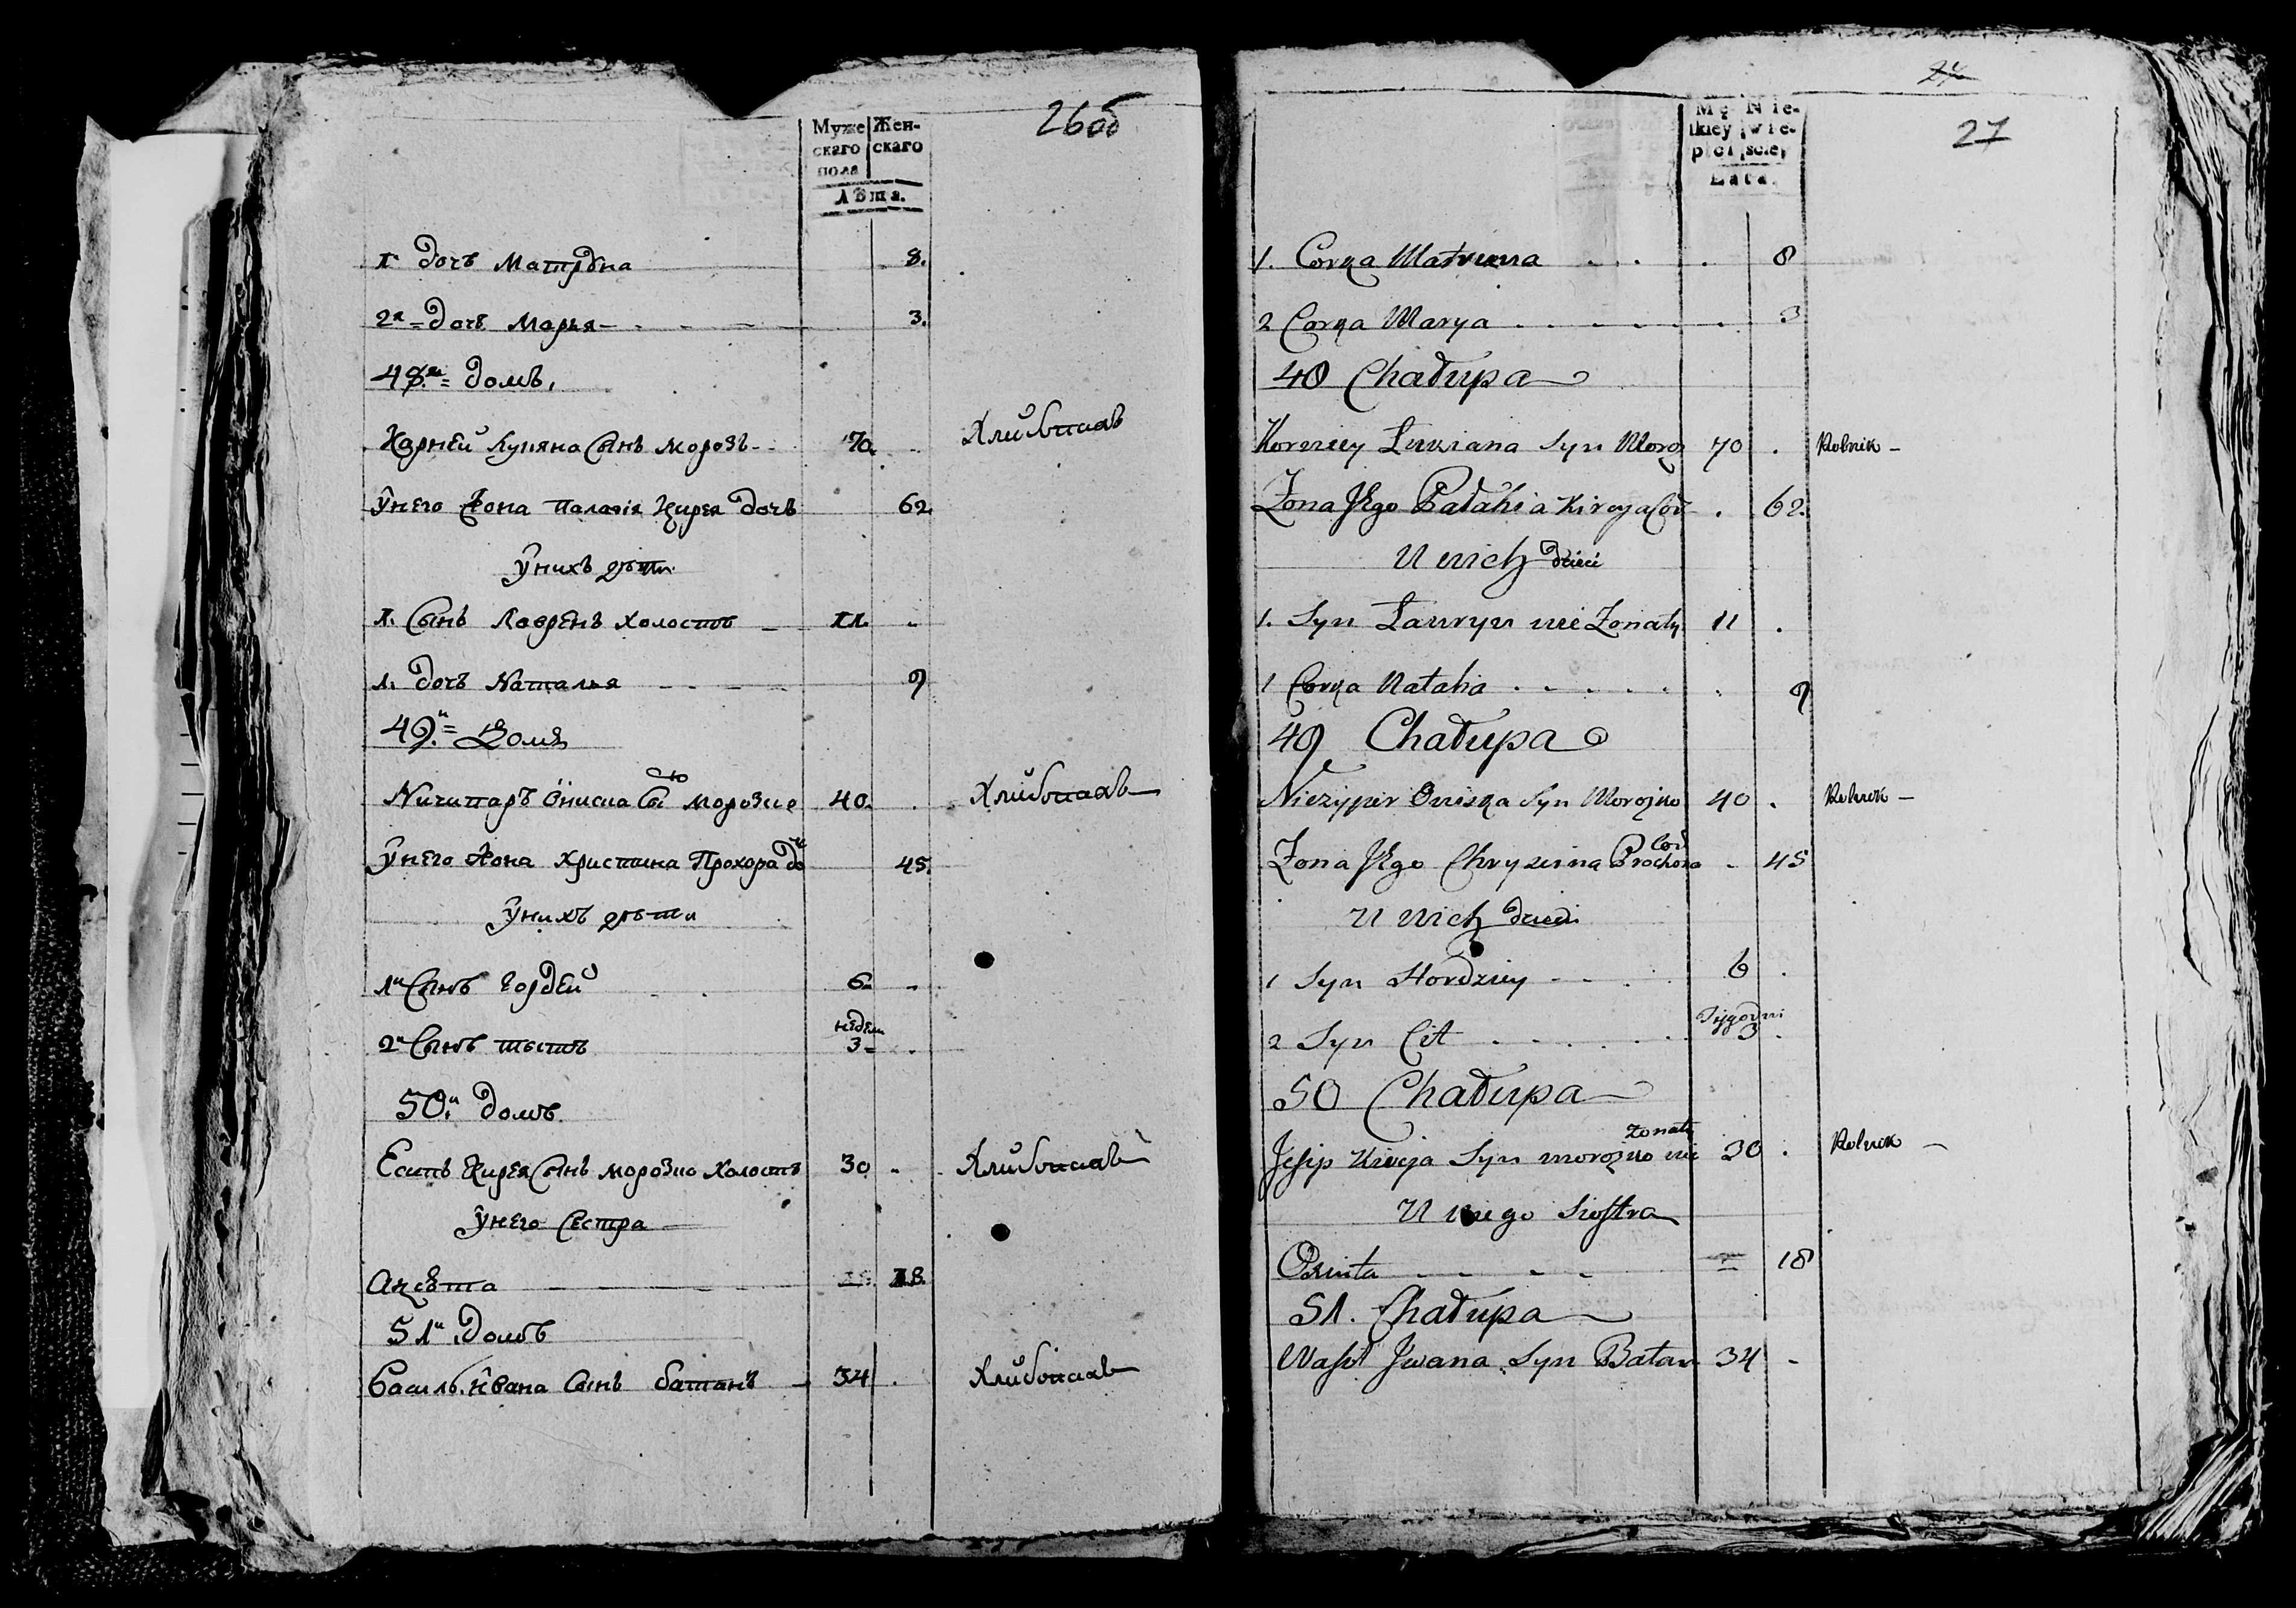 26об
Муже Жен-
скаго скаго
пола
Лѣта.
1. дочь Матрƴна 8.
2я дочь Марья 3.
48й домъ,
Карней Лукяна Сынъ морозъ 70. Хлибопаш
ƴнего Жона Палагія Кирея дочъ 62.
ƴнихъ дѣти
1. Сынъ Лаврѣнъ холостъ 11.
1. дочъ Наталья 9
49й Домъ
Ничипаръ Ониска Сы морозко 40. Хлибопаш
ƴнего Жона христина Прохора до 45.
ƴнихъ дѣти
1й Сынъ Гордей 6.
недели
2й Сынъ титъ 3
50й домъ.
Есипъ Кирея Сынъ морозко холостъ 30 Хлибопаш
ƴнего Сестра
Аксѣта 18.
51й домъ
Василь Ивана Сынъ батанъ 34 Хлибопаш
27
Mę Nie-
skiey wie-
płci sciey
Lata.
1. Corka Matruna 8
2 Corka Marya 3
48 Chałupa
Korniey Łukiana Syn Moroz 70 Rolnik
Zona Jego Pałahia Kireja Cor 62.
U nich dzieci
1. Syn Ławryn nie Zonaty 11
1 Corka Natalia 9
49 Chałupa
Niczypir Oniska Syn Morozko 40 Rolnik
Cor
Zona Jego Chrystina Prochora 45
U nich dzieci
1 Syn Hordziey 6
Tygodni
2 Syn Cit 3
50 Chałupa
zonaty
Jesip Kireja Syn morozko nie 30 Rolnik
U niego Siostra
Oxiuta 18
51. Chałupa
Wasil Jwana Syn Batan 34